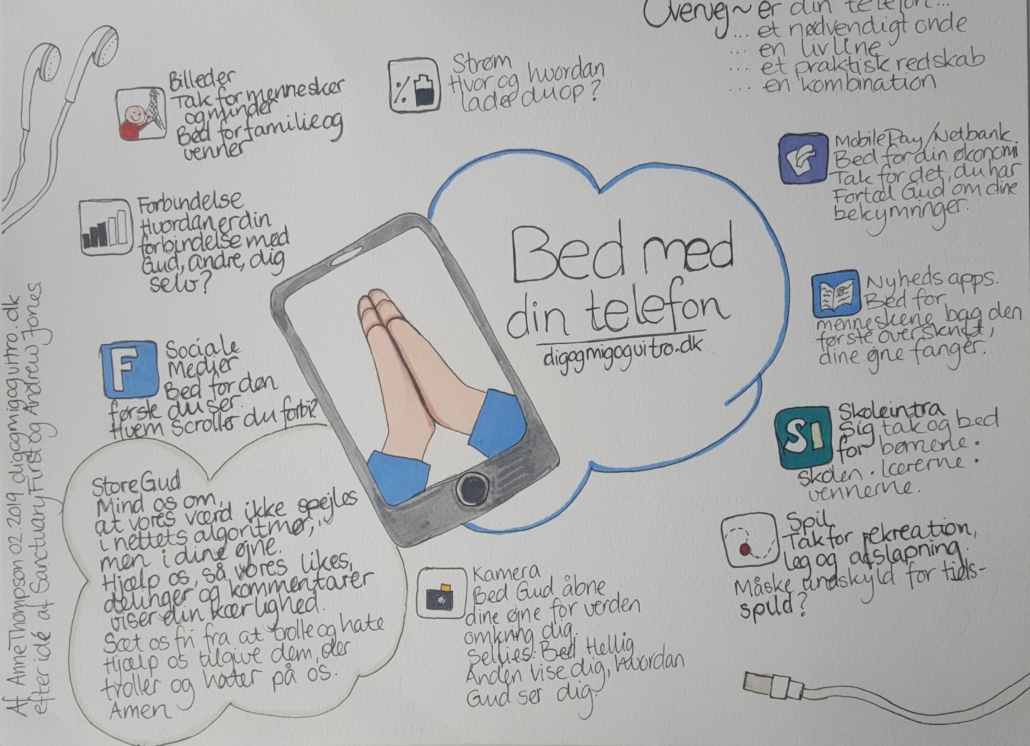 Overvej~ er din telefon...
... et nødvendigt onde
... en livline
... et praktisk redskab
... en kombination
Billeder
Tak for mennesker
og minder
Bed for familie og
venner
Strøm
Hvor og hvordan
lader du op?
MobilePay/Netbank.
Bed for din økonomi
Tak for det, du har
Fortæl Gud om dine
bekymringer.
Forbindelse
Hvordan er din
forbindelse med
Gud, andre, dig
selv?
Bed med
din telefon
digogmigogvitro.dk
Nyheds apps.
Bed for
menneskene bag den
første overskrift,
dine øjne fanger.
F
Sociale
Medier
Bed for den
første du ser.
Hvem scroller du forbi?
SI
Skoleintra
Sig tak og bed
for børnene.
skolen. lærerne.
vennerne.
Spil
Tak for rekreation,
leg og afslapning.
Måske undskyld for tids-
spild?
Store Gud
Mind os om,
at vores værd ikke spejles
i nettets algoritmer,
men i dine øjne.
Hjælp os, så vores likes,
delinger og kommentarer
viser din kærlighed.
Sæt os fri fra at trolle og hate
Hjælp os tilgive dem, der
troller og hater på os.
Amen
Kamera
Bed Gud åbne
dine øjne for verden
omkring dig.
Selfies: Bed Hellig
Ånden vise dig, hvordan
Gud ser dig.
Af Anne Thompson 02.2019 digogmigogvitro.dk
efter idé af Sanctuary First og Andrew Jones